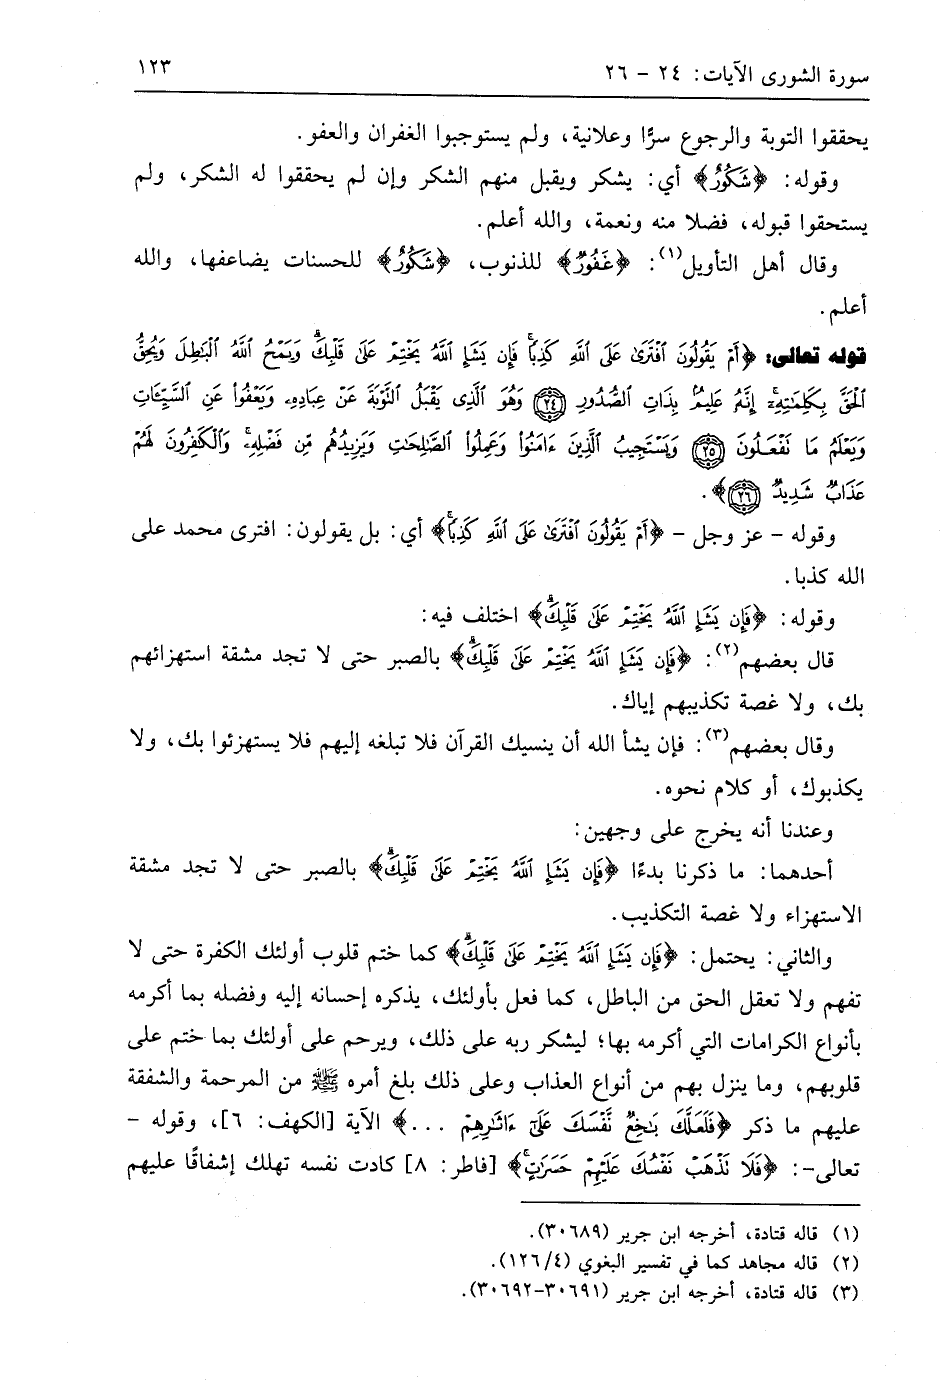 سورة الشورى الآيات: ٢٤ - ٢٦ ١٢٣
يحققوا التوبة والرجوع سرًّا وعلانية، ولم يستوجبوا الغفران والعفو.
وقوله: ﴿شَكُورٌ﴾ أي: يشكر ويقبل منهم الشكر وإن لم يحققوا له الشكر، ولم
يستحقوا قبوله، فضلا منه ونعمة، والله أعلم.
وقال أهل التأويل(١): ﴿غَفُورٌ﴾ للذنوب، ﴿شَكُورٌ﴾ للحسنات يضاعفها، والله
أعلم.
قوله تعالى: ﴿أَمْ يَقُولُونَ ٱفْتَرَىٰ عَلَى ٱللَّهِ كَذِبًاۖ فَإِن يَشَإِ ٱللَّهُ يَخْتِمْ عَلَىٰ قَلْبِكَۗ وَيَمْحُ ٱللَّهُ ٱلْبَٰطِلَ وَيُحِقُّ
ٱلْحَقَّ بِكَلِمَٰتِهِۦٓۚ إِنَّهُۥ عَلِيمٌۢ بِذَاتِ ٱلصُّدُورِ ٢٤ وَهُوَ ٱلَّذِى يَقْبَلُ ٱلتَّوْبَةَ عَنْ عِبَادِهِۦ وَيَعْفُوا۟ عَنِ ٱلسَّيِّـَٔاتِ
وَيَعْلَمُ مَا تَفْعَلُونَ ٢٥ وَيَسْتَجِيبُ ٱلَّذِينَ ءَامَنُوا۟ وَعَمِلُوا۟ ٱلصَّٰلِحَٰتِ وَيَزِيدُهُم مِّن فَضْلِهِۦۚ وَٱلْكَٰفِرُونَ لَهُمْ
عَذَابٌ شَدِيدٌ ٢٦﴾.
وقوله - عز وجل - ﴿أَمْ يَقُولُونَ ٱفْتَرَىٰ عَلَى ٱللَّهِ كَذِبًاۖ﴾ أي: بل يقولون: افترى محمد على
الله كذبا.
وقوله: ﴿فَإِن يَشَإِ ٱللَّهُ يَخْتِمْ عَلَىٰ قَلْبِكَۗ﴾ اختلف فيه:
قال بعضهم(٢): ﴿فَإِن يَشَإِ ٱللَّهُ يَخْتِمْ عَلَىٰ قَلْبِكَۗ﴾ بالصبر حتى لا تجد مشقة استهزائهم
بك، ولا غصة تكذيبهم إياك.
وقال بعضهم(٣): فإن يشأ الله أن ينسيك القرآن فلا تبلغه إليهم فلا يستهزئوا بك، ولا
يكذبوك، أو كلام نحوه.
وعندنا أنه يخرج على وجهين:
أحدهما: ما ذكرنا بدءًا ﴿فَإِن يَشَإِ ٱللَّهُ يَخْتِمْ عَلَىٰ قَلْبِكَۗ﴾ بالصبر حتى لا تجد مشقة
الاستهزاء ولا غصة التكذيب.
والثاني: يحتمل: ﴿فَإِن يَشَإِ ٱللَّهُ يَخْتِمْ عَلَىٰ قَلْبِكَۗ﴾ كما ختم قلوب أولئك الكفرة حتى لا
تفهم ولا تعقل الحق من الباطل، كما فعل بأولئك، يذكره إحسانه إليه وفضله بما أكرمه
بأنواع الكرامات التي أكرمه بها؛ ليشكر ربه على ذلك، ويرحم على أولئك بما ختم على
قلوبهم، وما ينزل بهم من أنواع العذاب وعلى ذلك بلغ أمره ﷺ من المرحمة والشفقة
عليهم ما ذكر ﴿فَلَعَلَّكَ بَٰخِعٌ نَّفْسَكَ عَلَىٰٓ ءَاثَٰرِهِمْ ...﴾ الآية [الكهف: ٦]، وقوله -
تعالى-: ﴿فَلَا تَذْهَبْ نَفْسُكَ عَلَيْهِمْ حَسَرَٰتٍۚ﴾ [فاطر: ٨] كادت نفسه تهلك إشفاقًا عليهم
(١) قاله قتادة، أخرجه ابن جرير (٣٠٦٨٩).
(٢) قاله مجاهد كما في تفسير البغوي (٤/١٢٦).
(٣) قاله قتادة، أخرجه ابن جرير (٣٠٦٩١-٣٠٦٩٢).